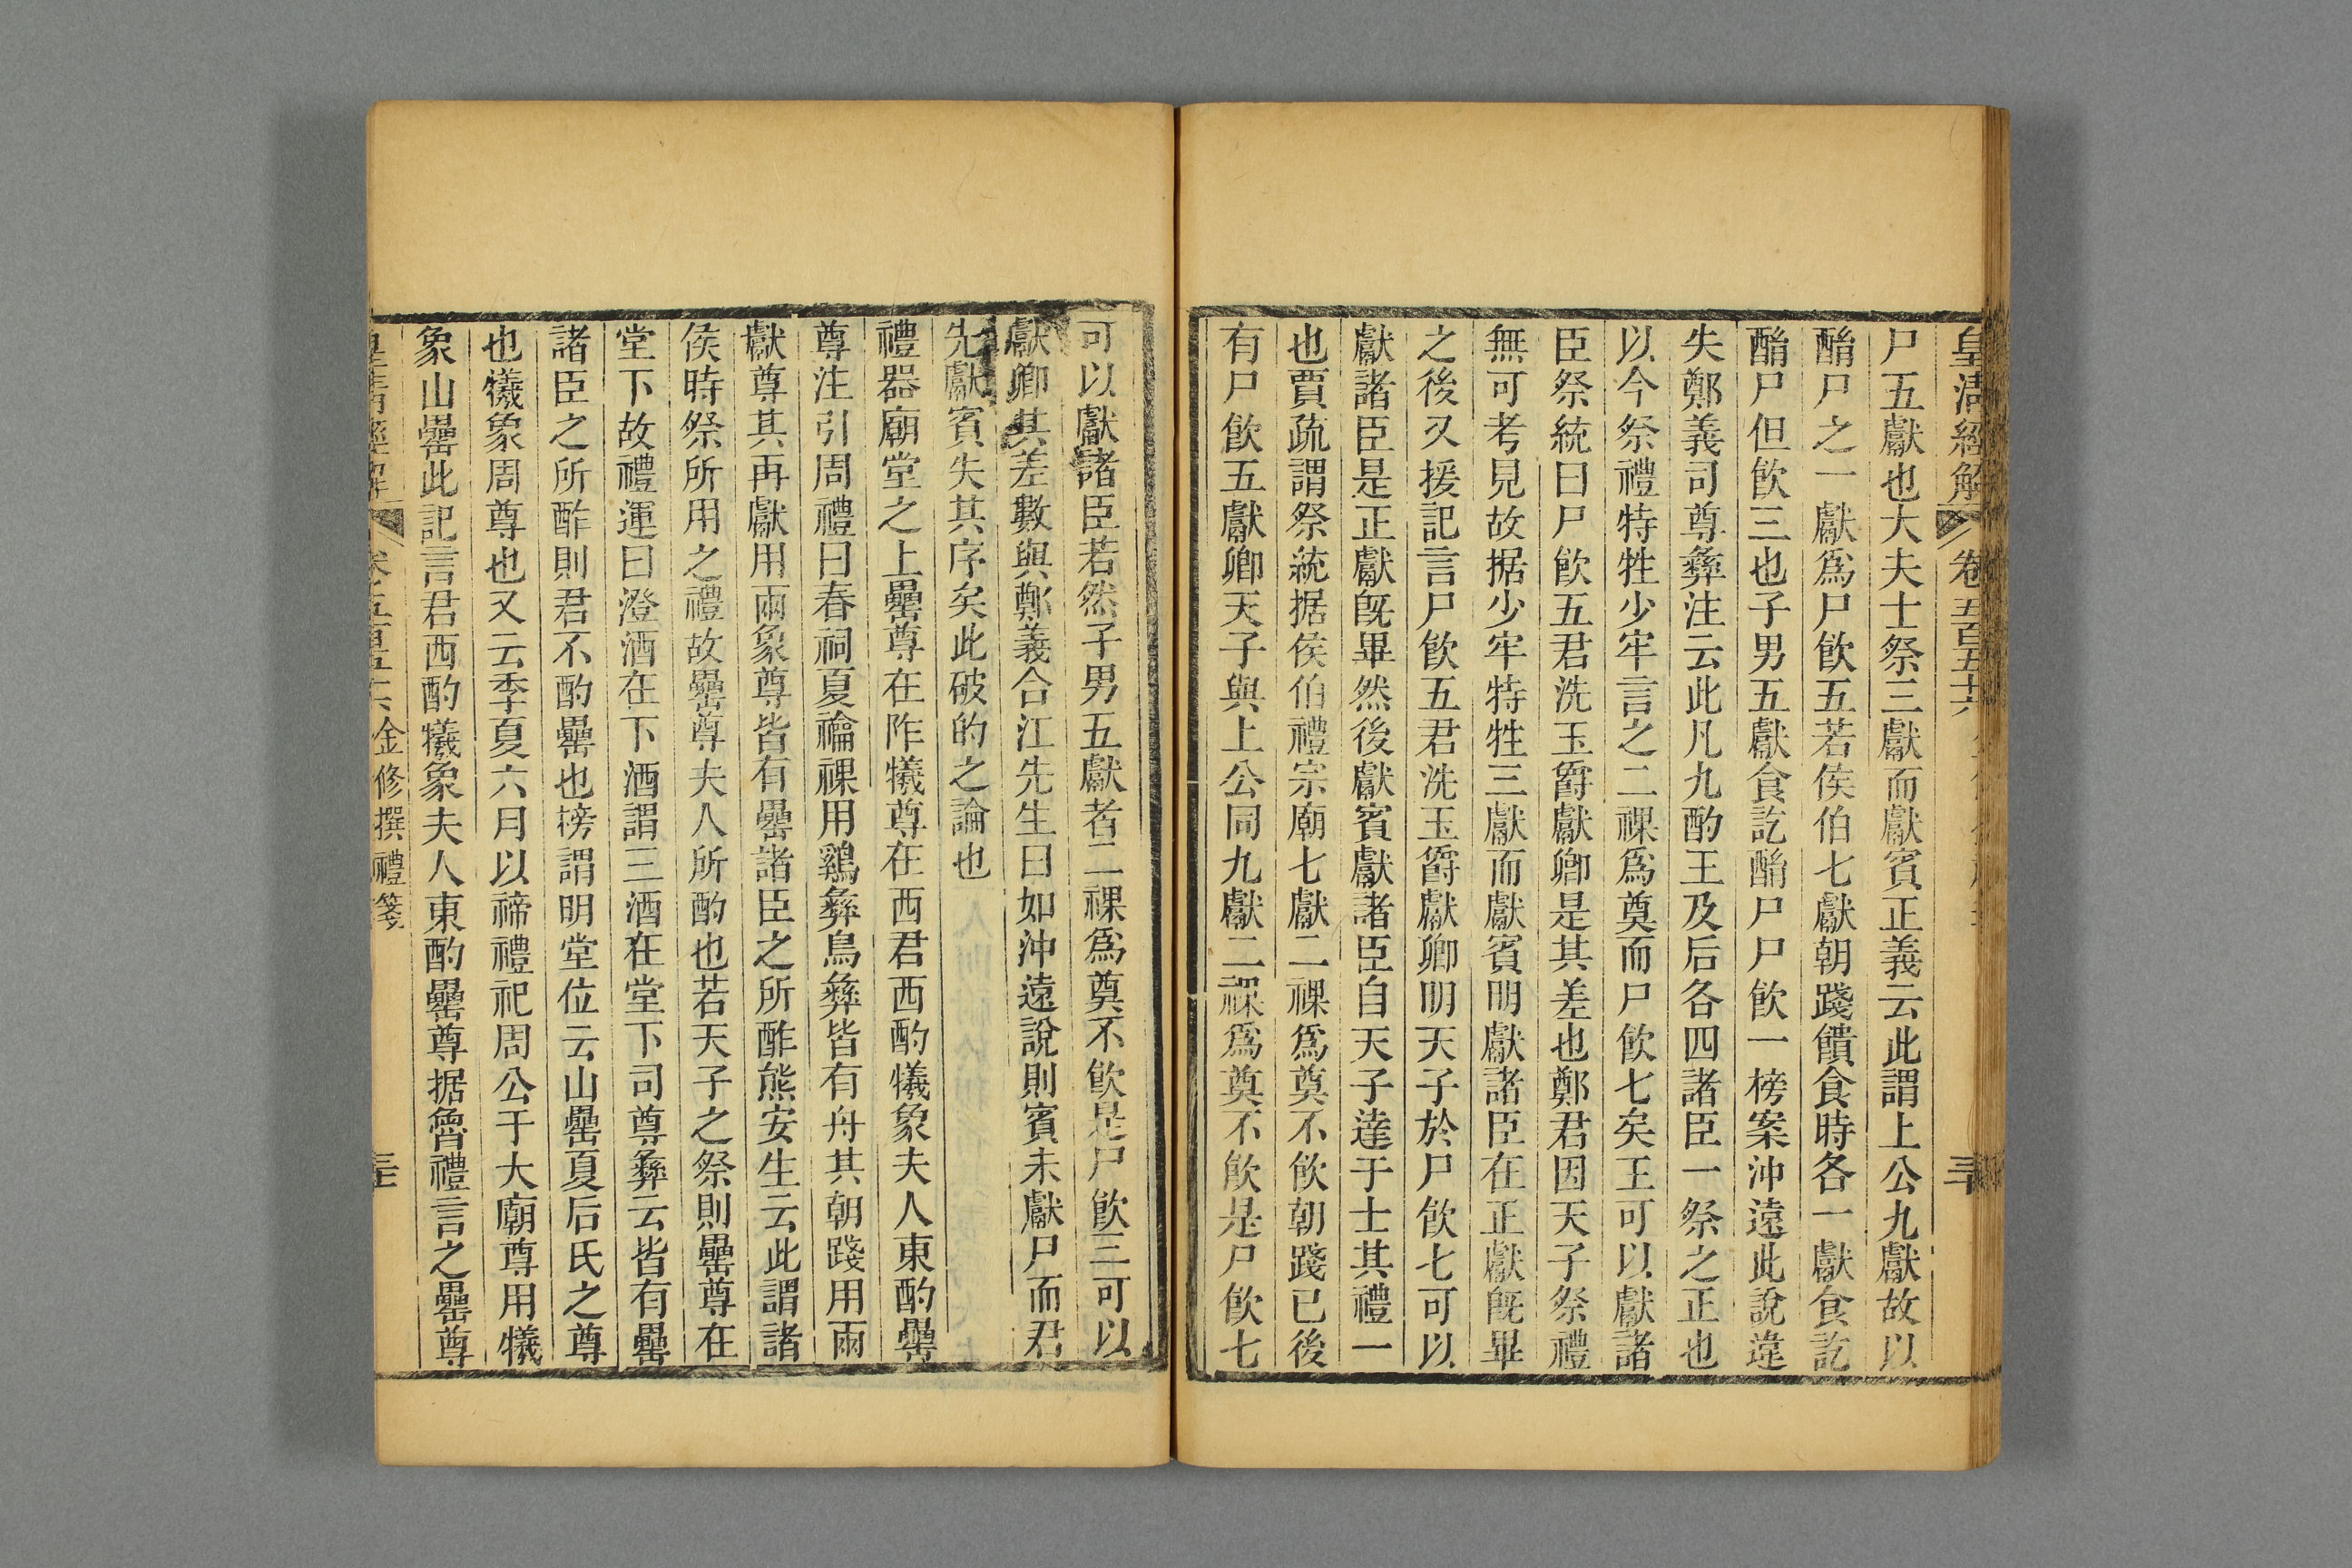 皇清經解 卷五百五十六 三十
尸五獻也大夫士祭三獻而獻賓正義云此謂上公九獻故以
酳尸之一獻爲尸飮五若侯伯七獻朝踐饋食時各一獻食訖
酳尸但飮三也子男五獻食訖酳尸尸飮一榜案沖遠此說違
失鄭義司尊彝注云此凡九酌王及后各四諸臣一祭之正也
以今祭禮特牲少牢言之二祼爲奠而尸飮七矣王可以獻諸
臣祭統曰尸飮五君洗玉爵獻卿是其差也鄭君因天子祭禮
無可考見故据少牢特牲三獻而獻賓明獻諸臣在正獻旣畢
之後又援記言尸飮五君洗玉爵獻卿明天子於尸飮七可以
獻諸臣是正獻旣畢然後獻賓獻諸臣自天子達于士其禮一
也賈疏謂祭統据侯伯禮宗廟七獻二祼爲奠不飮朝踐已後
有尸飮五獻卿天子與上公同九獻二祼爲奠不飮是尸飮七
可以獻諸臣若然子男五獻者二祼爲奠不飮是尸飮三可以
獻卿其差數與鄭義合江先生曰如沖遠說則賓未獻尸而君
先獻賓失其序矣此破的之論也
禮器廟堂之上罍尊在阼犧尊在西君西酌犧象夫人東酌罍
尊注引周禮曰春祠夏禴祼用鷄彝鳥彝皆有舟其朝踐用兩
獻尊其再獻用兩象尊皆有罍諸臣之所酢熊安生云此謂諸
侯時祭所用之禮故罍尊夫人所酌也若天子之祭則罍尊在
堂下故禮運曰澄酒在下酒謂三酒在堂下司尊彝云皆有罍
諸臣之所酢則君不酌罍也榜謂明堂位云山罍夏后氏之尊
也犧象周尊也又云季夏六月以禘禮祀周公于大廟尊用犧
象山罍此記言君西酌犧象夫人東酌罍尊据魯禮言之罍尊
皇清經解 卷五百五十六 金修撰禮箋